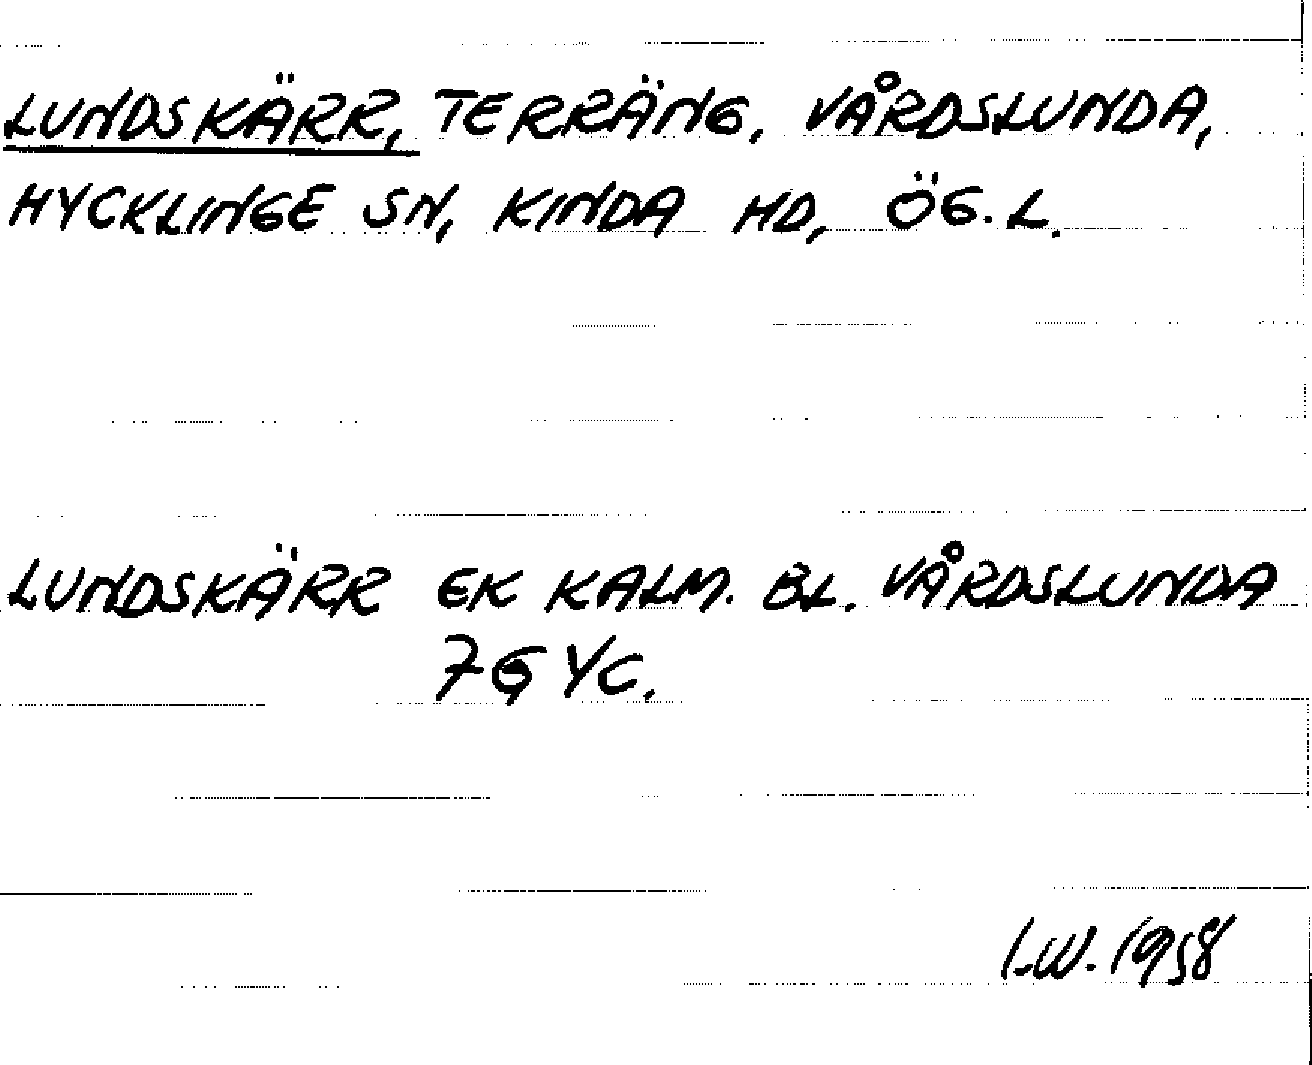 LUNDSKÄRR, TERRÄNG, VÅRDSLUNDA,
HYCKLINGE SN, KINDA HD, ÖG. L.
LUNDSKÄRR EK KALM. BL. VÅRDSLUNDA
7G YC.
I.W. 1958